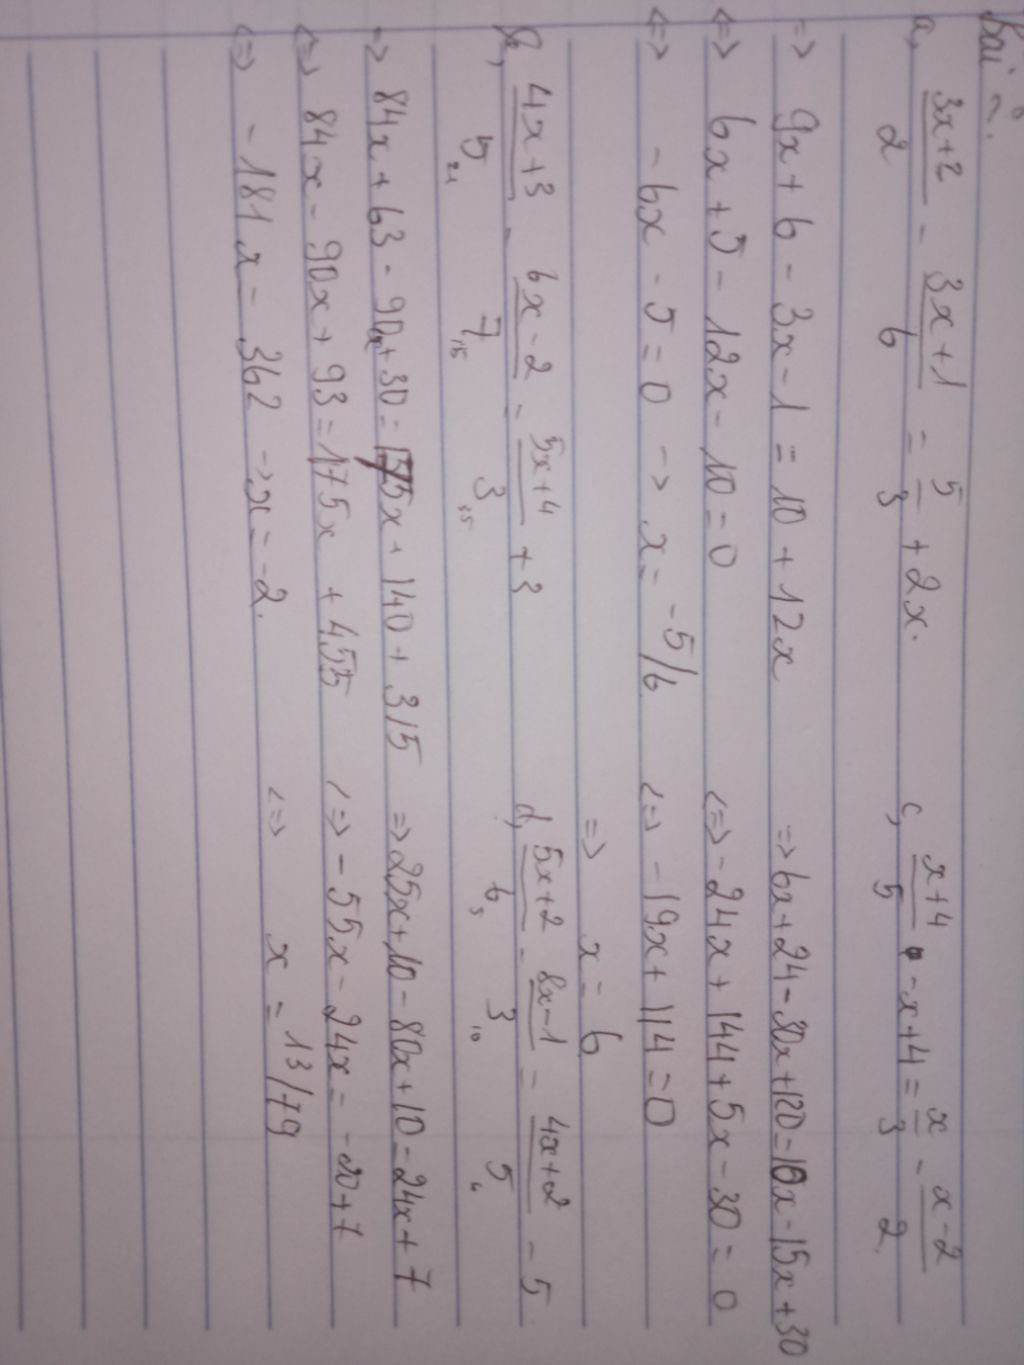 Bài 2.
a, 3x+2/2 - 3x+1/6 = 5/3 + 2x.
=> 9x + 6 - 3x - 1 = 10 + 12x
<=> 6x + 5 - 12x - 10 = 0
<=> - 6x - 5 = 0 -> x = -5/6
4x+3/5 - 6x-2/7 = 5x+4/3 + 3
21 15 35
=> 84x + 63 - 90x + 30 = 175x + 140 + 315
<=> 84x - 90x + 93 = 175x + 455
<=> - 181x = 362 -> x = -2.
c, x+4/5 - x + 4 = x/3 - x-2/2
=> 6x + 24 - 30x + 120 = 10x - 15x + 30
<=> - 24x + 144 + 5x - 30 = 0
<=> - 19x + 114 = 0
=> x = 6
d, 5x+2/6 - 8x-1/3 = 4x+2/5 - 5
5 10 6
=> 25x + 10 - 80x + 10 = 24x + 7
<=> - 55x - 24x = -20 + 7
<=> x = 13/79